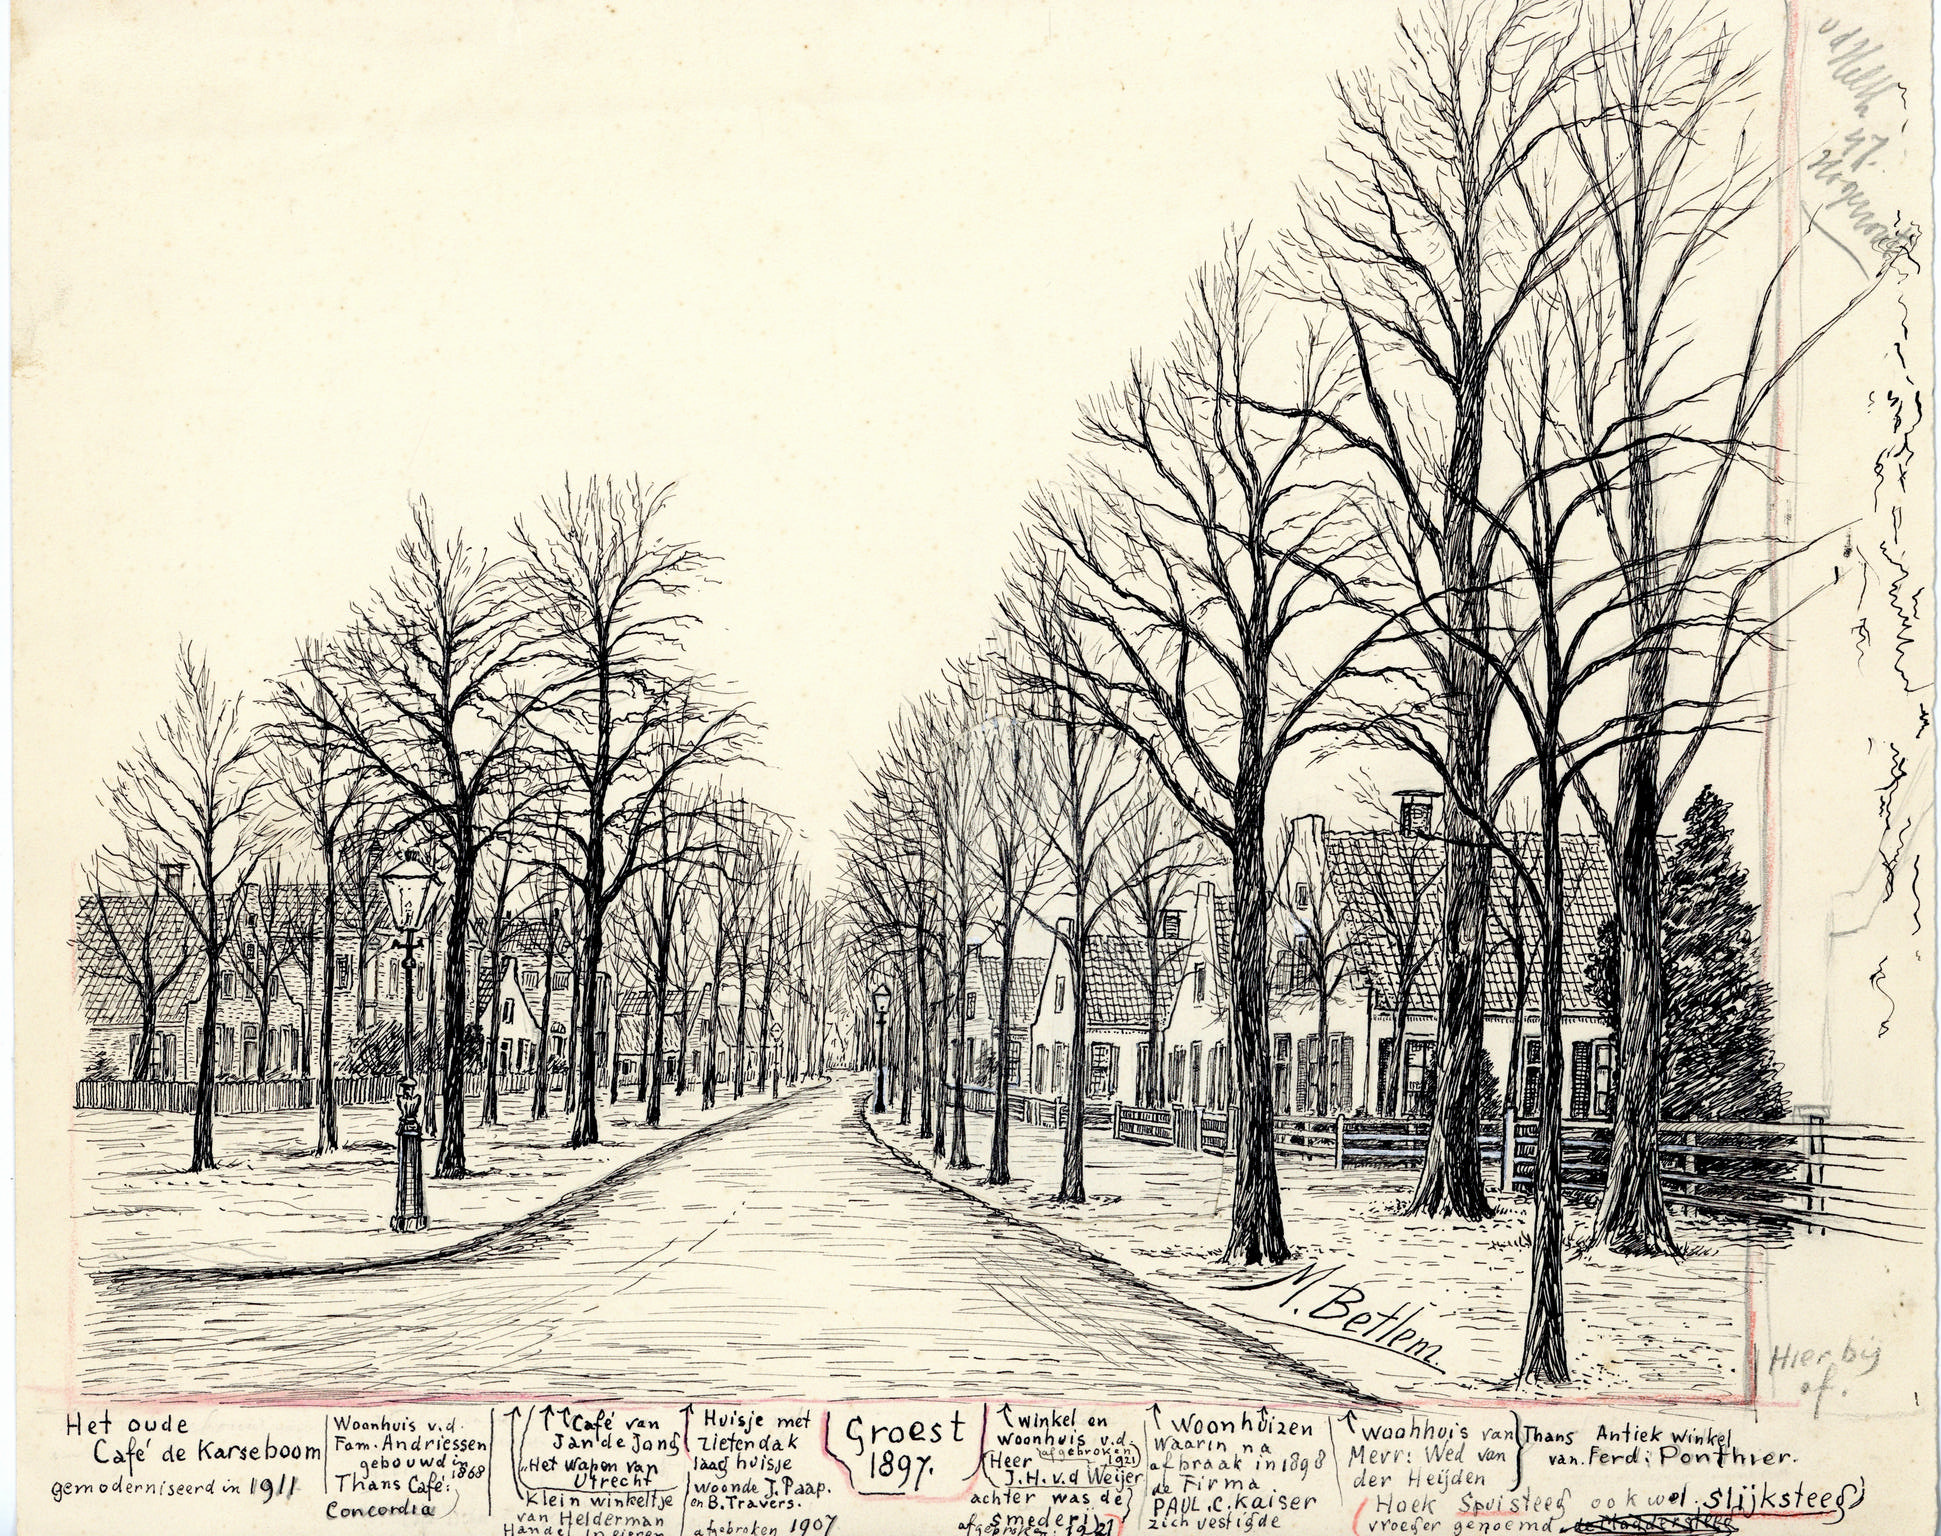 M. Betlem.
Hier bij
af.
Het oude
Café de Karseboom
gemoderniseerd in 1911
Woonhuis v.d.
Fam. Andriessen
gebouwd in
1868
Thans Café:
Concordia
Café van
Jan de Jong
"Het Wapen van
Utrecht
Klein winkeltje
van Helderman
Handel in eieren
Huisje met
zietendak
laag huisje
woonde J. Paap.
en B. Travers.
afgebroken 1907
Groest
1897.
winkel en
woonhuis v.d.
(afgebroken
1921)
Heer
J.H. v.d Weijer
achter was de
smederij
afgebroken: 1921
woonhuizen
waarin na
afbraak in 1898
de Firma
PAUL. C. Kaiser
zich vestigde
woonhuis van
Merr: Wed van
der Heijden
Thans Antiek winkel
van. Ferd: Ponthier.
(Hoek Spuisteeg ook wel. Slijksteeg)
vroeger genoemd